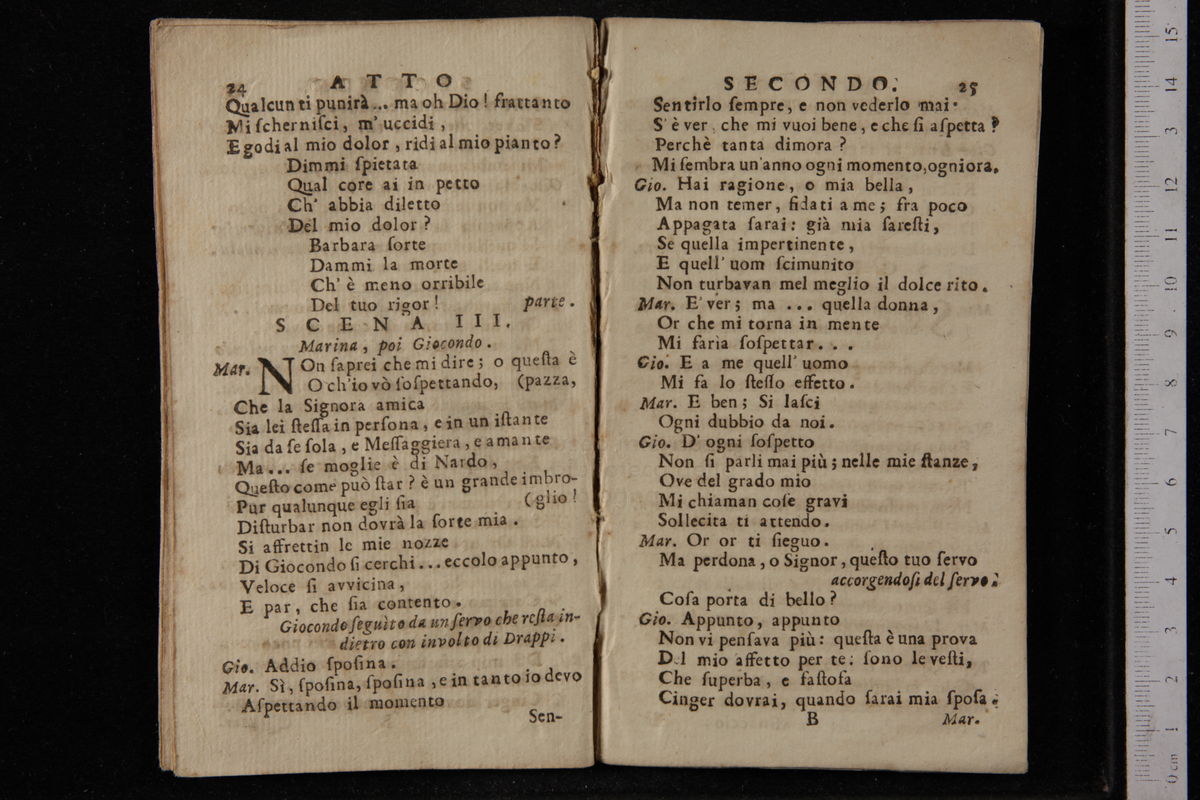 24 ATTO
Qualcun ti punirà... ma oh Dio! frattanto
Mi ſcherniſci, m' uccidi,
E godi al mio dolor, ridi al mio pianto?
Dimmi ſpietata
Qual core ai in petto
Ch' abbia diletto
Del mio dolor?
Barbara ſorte
Dammi la morte
Ch' è meno orribile
Del tuo rigor! parte.
SCENA III.
Marina, poi Giocondo.
Mar. NOn ſaprei che mi dire; o queſta è
O ch'io vò ſoſpettando, (pazza,
Che la Signora amica
Sia lei ſteſſa in perſona, e in un iſtante
Sia da ſe ſola, e Meſſaggiera, e amante
Ma... ſe moglie è di Nardo,
Queſto come può ſtar? è un grande imbro-
Pur qualunque egli ſia (glio!
Diſturbar non dovrà la ſorte mia.
Si affrettin le mie nozze
Di Giocondo ſi cerchi... eccolo appunto,
Veloce ſi avvicina,
E par, che ſia contento.
Giocondo ſeguìto da un ſervo che reſta in-
dietro con involto di Drappi.
Gio. Addio ſpoſina.
Mar. Sì, ſpoſina, ſpoſina, e in tanto io devo
Aſpettando il momento
Sen-
SECONDO. 25
Sentirlo ſempre, e non vederlo mai.
S' è ver che mi vuoi bene, e che ſi aſpetta?
Perchè tanta dimora?
Mi ſembra un'anno ogni momento, ogniora.
Gio. Hai ragione, o mia bella,
Ma non temer, fidati a me; fra poco
Appagata ſarai: già mia ſareſti,
Se quella impertinente,
E quell' uom ſcimunito
Non turbavan mel meglio il dolce rito.
Mar. E' ver; ma ... quella donna,
Or che mi torna in mente
Mi farìa ſoſpettar...
Gio. E a me quell' uomo
Mi fa lo ſteſſo effetto.
Mar. E ben; Si laſci
Ogni dubbio da noi.
Gio. D' ogni ſoſpetto
Non ſi parli mai più; nelle mie ſtanze,
Ove del grado mio
Mi chiaman coſe gravi
Sollecita ti attendo.
Mar. Or or ti ſieguo.
Ma perdona, o Signor, queſto tuo ſervo
accorgendoſi del ſervo.
Coſa porta di bello?
Gio. Appunto, appunto
Non vi penſava più: queſta è una prova
Del mio affetto per te; ſono le veſti,
Che ſuperba, e faſtoſa
Cinger dovrai, quando ſarai mia ſpoſa.
B Mar.
0 cm 1 2 3 4 5 6 7 8 9 10 11 12 3 14 15